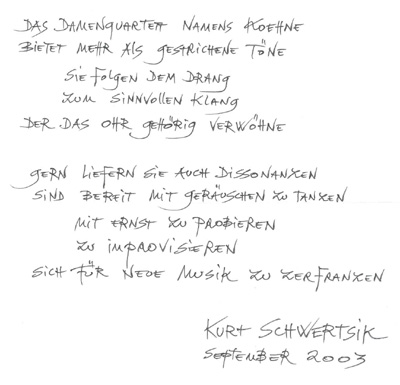 DAS DAMENQUARTETT NAMENS KOEHNE
BIETET MEHR ALS GESTRICHENE TÖNE
SIE FOLGEN DEM DRANG
ZUM SINNVOLLEN KLANG
DER DAS OHR GEHÖRIG VERWÖHNE
GERN LIEFERN SIE AUCH DISSONANZEN
SIND BEREIT MIT GERÄUSCHEN ZU TANZEN
MIT ERNST ZU PROBIEREN
ZU IMPROVISIEREN
SICH FÜR NEUE MUSIK ZU ZERFRANZEN
KURT SCHWERTSIK
SEPTEMBER 2003